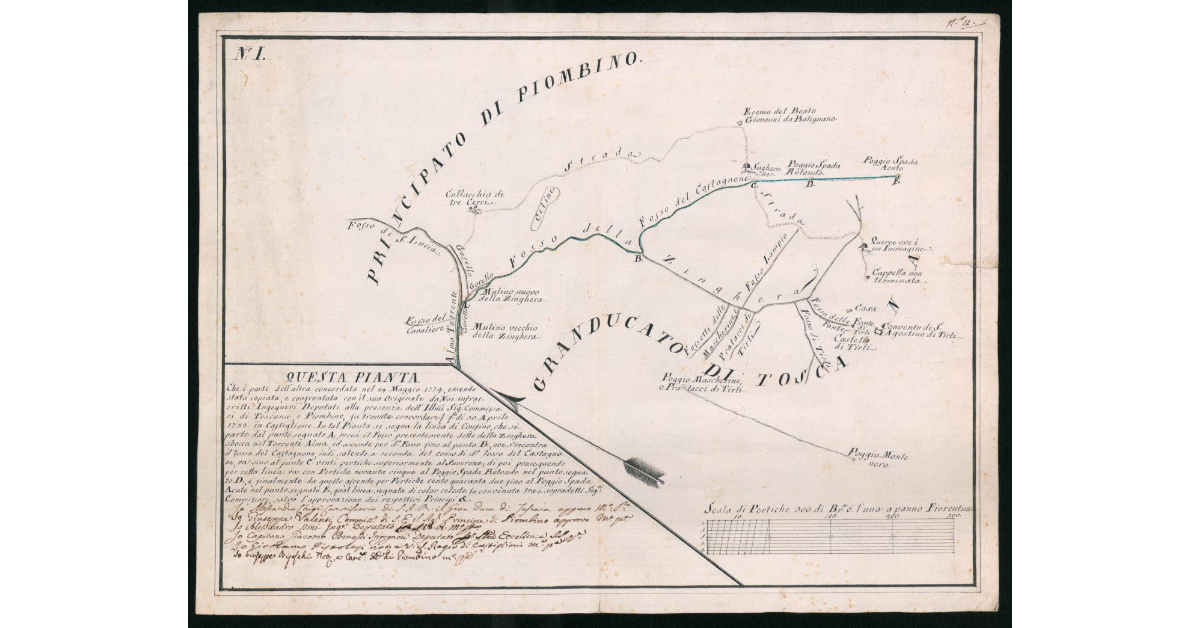 N.º 12.
N.º I.
PRINCIPATO DI PIOMBINO.
Eremo del Beato
Giovanni da Batignano.
Strada
Sughero
Poggio Spada
Rotondo.
Poggio Spada
Acuto
C.
D.
E.
Collacchia di
tre Cerri.
Fosso del Castagnone
Strada
Fosso di S. Lucia.
Gorello
Fosso della
B.
Zinghera
Fosso Lampio
Querce ove è
un Immagine.
Cappella non
terminata.
Gorello
Mulino nuovo
della Zinghera.
Fosso del
Cavaliere
Alma Torrente
Gorello
Mulino vecchio
della Zinghera.
A
Casa
Fosso della Fonte
Fonte
Convento di S.
Agostino di Tirli.
Castello
di Tirli
Fosso di Tirli
Fossetti delle
Mascherine
Pratacci di
Tirli
GRANDUCATO DI TOSCANA
Poggio Mascherine,
o Pratacci di Tirli
Poggio Monte
nero.
QUESTA PIANTA
Che è parte dell'altra concordata nel 24 Maggio essendo
stata copiata, e confrontata con il suo Originale da Noi infras-
critti Ingegneri Deputati alla presenza dell' Illmi Sig. Commissa-
ri di Toscana, e Piombino, fu trovata concordare di 30 Aprile
in Castiglione. In tal Pianta si segna la linea di Confine, che si
parte dal punto segnato A, presso il Fosso presentemente detto della Zinghera
sbocca nel Torrente Alma, ed ascende per d.º Fosso fino al punto B, ove s'incontra
il Fosso del Castagnone, indi salendo a seconda del corso di d.º Fosso del Castagno-
ne, va sino al punto C venti pertiche superiormente al Sughero; di poi proseguendo
per retta linea va con Pertiche novanta cinque al Poggio Spada Rotondo nel punto segna-
to D, e finalmente da questo ascende per Pertiche cento quaranta due fino al Poggio Spada
Acuto nel punto segnato E, qual linea segnata di color celeste fu convenuta tra i sopradetti Sig.ri
Commissari, salva l'approvazione dei respettivi Principi &.
Io Giuseppe Valenti Commiss. di S. E. il Sig. Principe di Piombino approvo
Io Alessandro Ingeg. Deputato
Io Capitano Giacomo Benassi Ingegnere Deputato
Scala di Pertiche 300 di Br. 6 l'una a panno Fiorentino
10
100
200
300